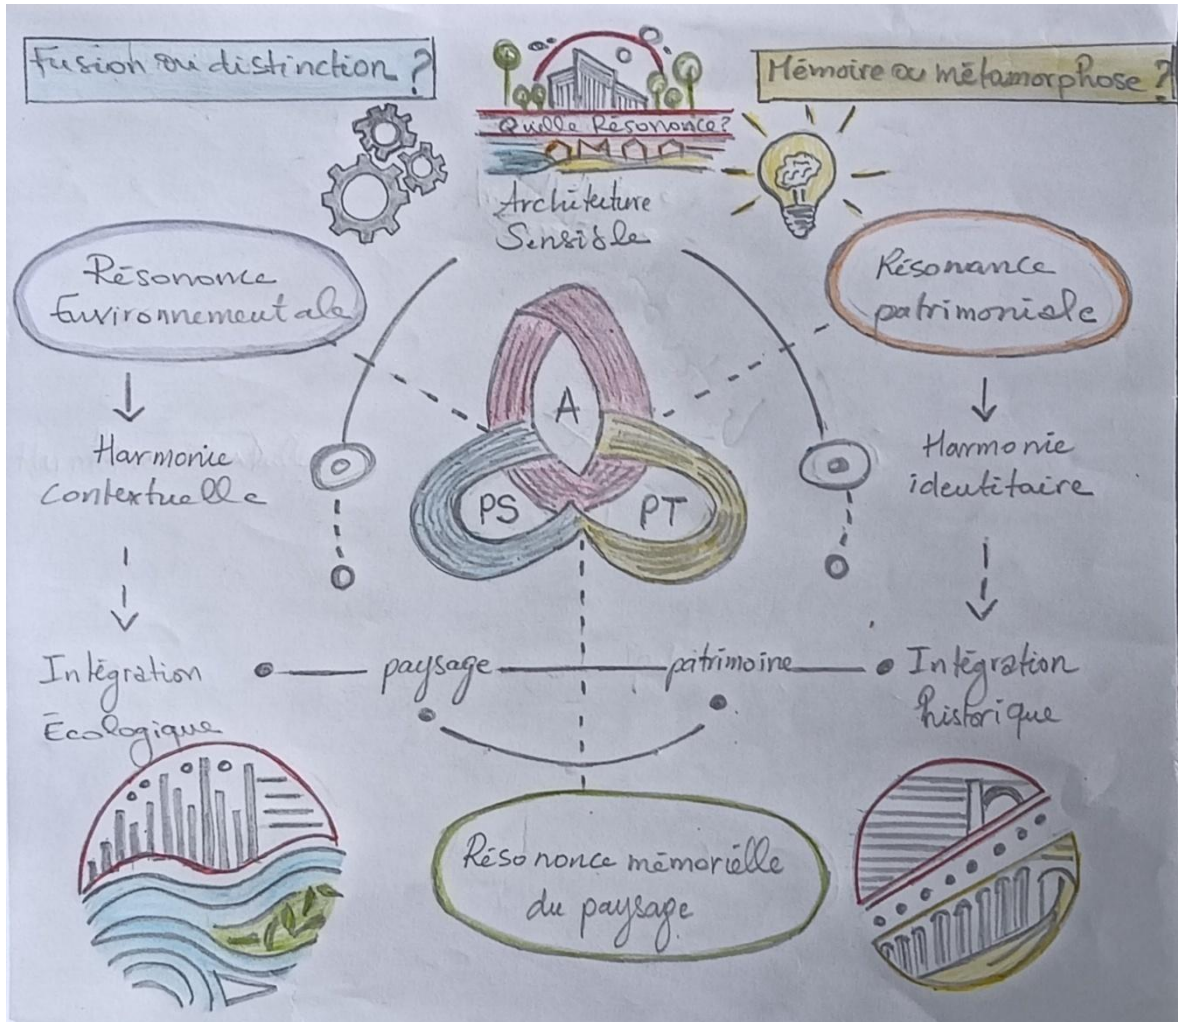 Fusion ou distinction ?
Mémoire ou métamorphose ?
Quelle Résononce?
Architecture
Sensible
Résononce
Environnementale
Résonance
patrimoniale
A
PS
PT
Harmonie
Contextuelle
Harmonie
identitaire
Intégration
Écologique
paysage
patrimoine
Intégration
historique
Résononce mémorielle
du paysage